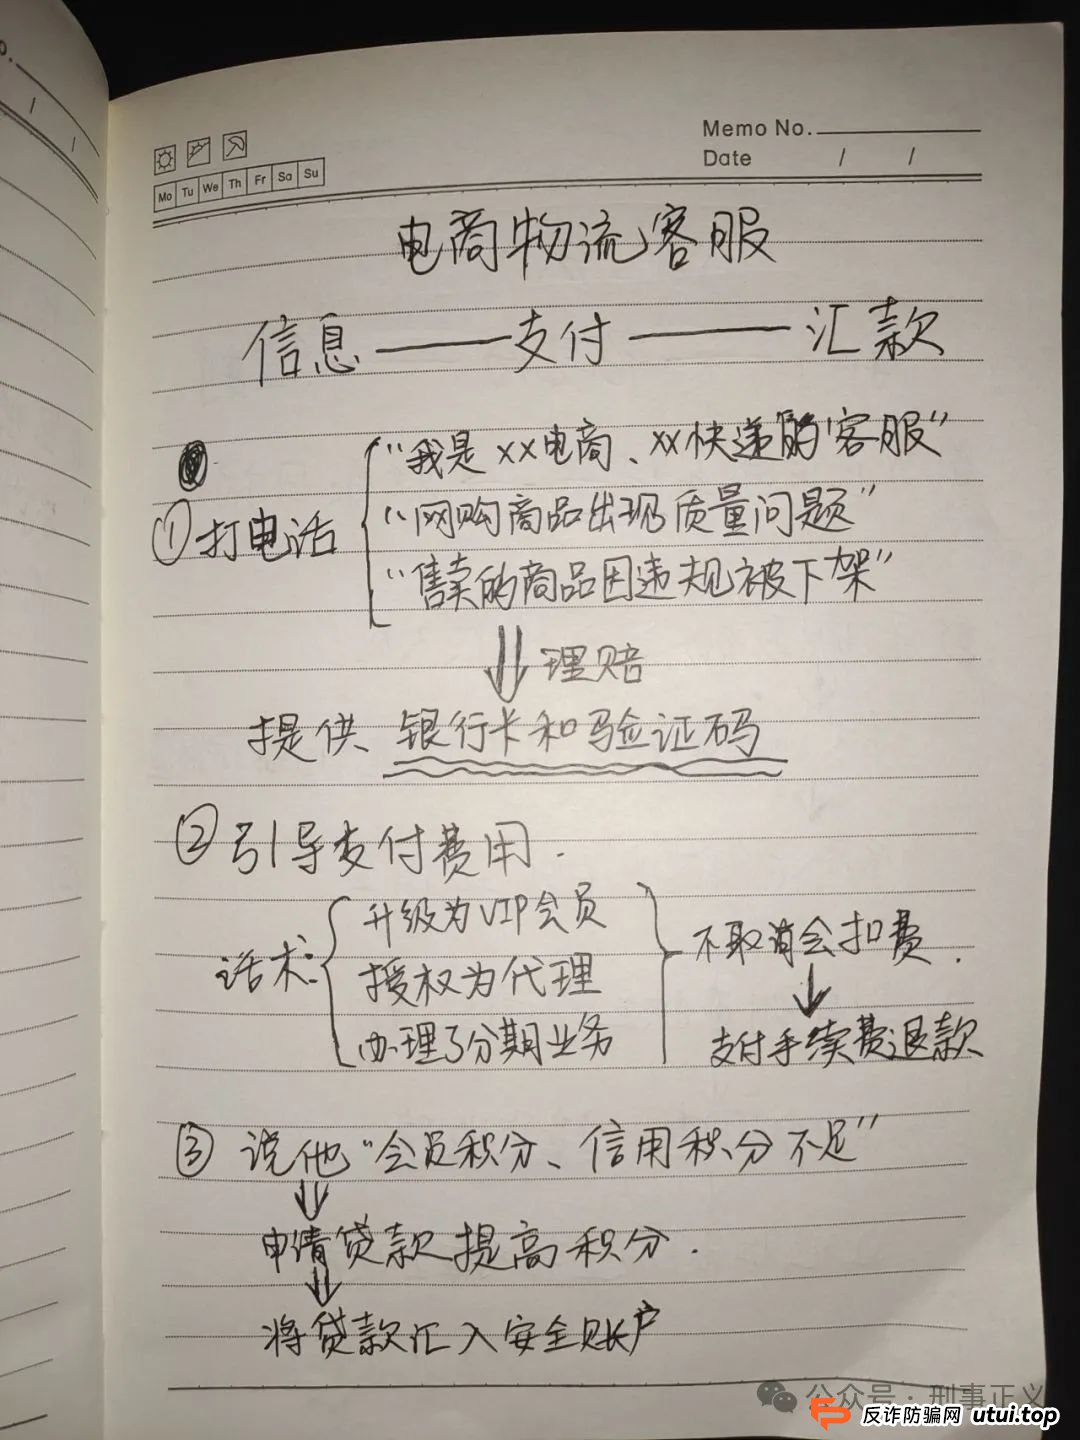 o.
Memo No.
Date / /
Mo Tu We Th Fr Sa Su
电商物流客服
信息——支付——汇款
①打电话
“我是xx电商、xx快递的‘客服”
“网购商品出现质量问题”
“售卖的商品因违规被下架”
理赔
提供、银行卡和验证码
②引导支付费用.
话术:
升级为VIP会员
授权为代理
办理了分期业务
不取消会扣费.
支付手续费退款
③说他“会员积分、信用积分不足”
申请贷款提高积分.
将贷款汇入安全账户
公众号·刑事正义
反诈防骗网 utui.top